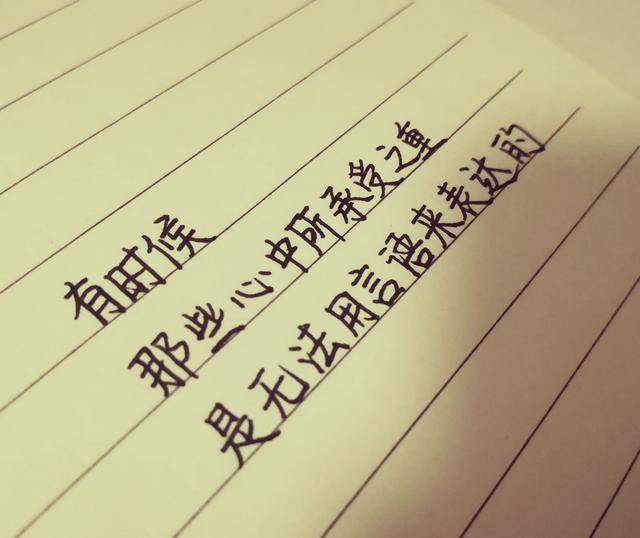 有时候
那些心中所承受之重
是无法用言语来表达的